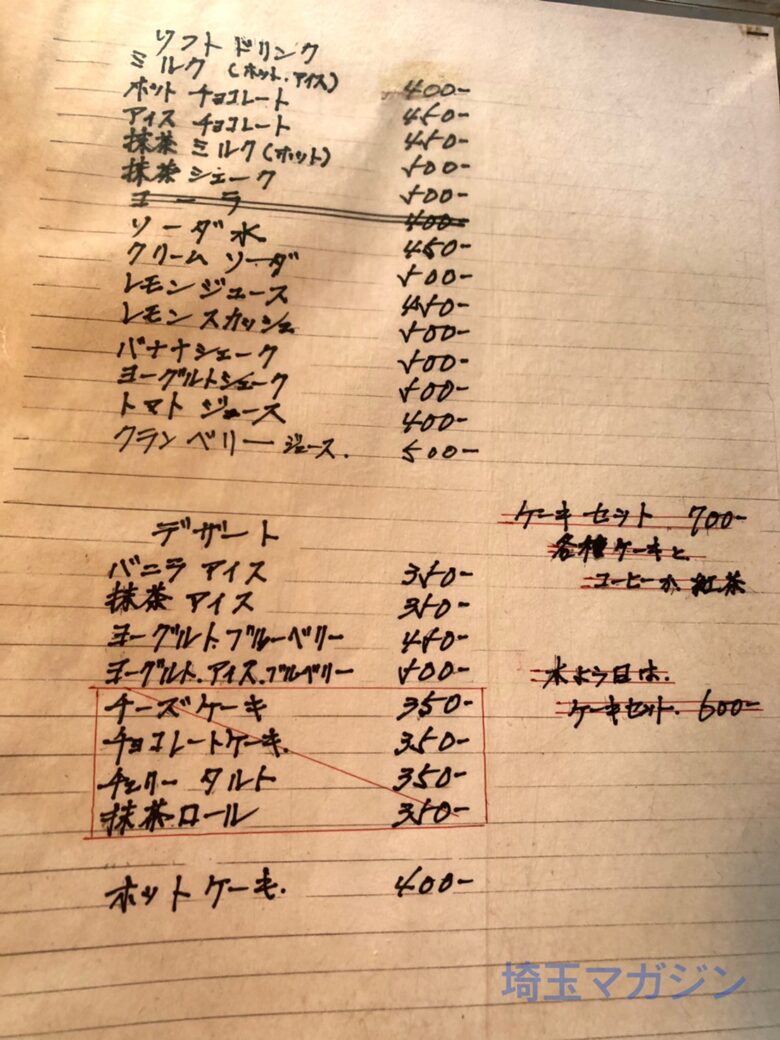 ソフトドリンク
ミルク (ホット・アイス) 400-
ホットチョコレート 450-
アイスチョコレート 450-
抹茶ミルク(ホット) 500-
抹茶シェーク 500-
コーラ 400-
ソーダ水 450-
クリームソーダ 500-
レモンジュース 450-
レモンスカッシュ 500-
バナナシェーク 500-
ヨーグルトシェーク 500-
トマトジュース 400-
クランベリージュース. 500-
デザート
バニラアイス 350-
抹茶アイス 350-
ヨーグルト.ブルーベリー 450-
ヨーグルト.アイス.ブルベリー 500-
チーズケーキ 350-
チョコレートケーキ. 350-
チェリータルト 350-
抹茶ロール 350-
ホットケーキ. 400-
ケーキセット 700-
各種ケーキと
コーヒーか紅茶
木よう日は.
ケーキセット. 600-
埼玉マガジン